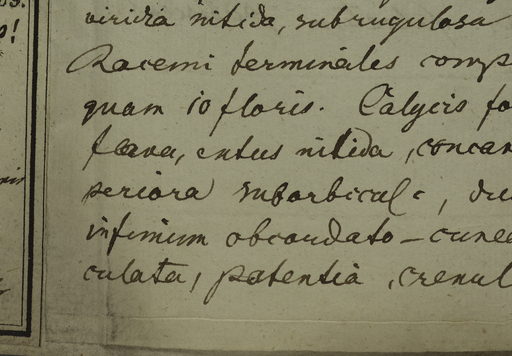 viridia nitida, subrugulosa
Racemi terminales comp
quam 10 floris. Calycis fo
flava, intus nitida, concav
periora suborbicul.,
infimum obcordato-cunea
culata, patentia, crenul